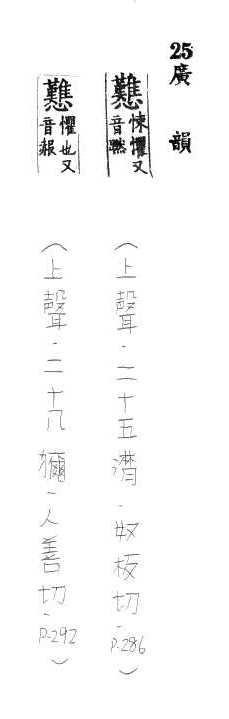 25 廣韻
戁 悚懼又
音
（上聲．二十五潸．奴板切．P.286）
戁 懼也又
音赧
（上聲．二十八獮．人善切．P.292）